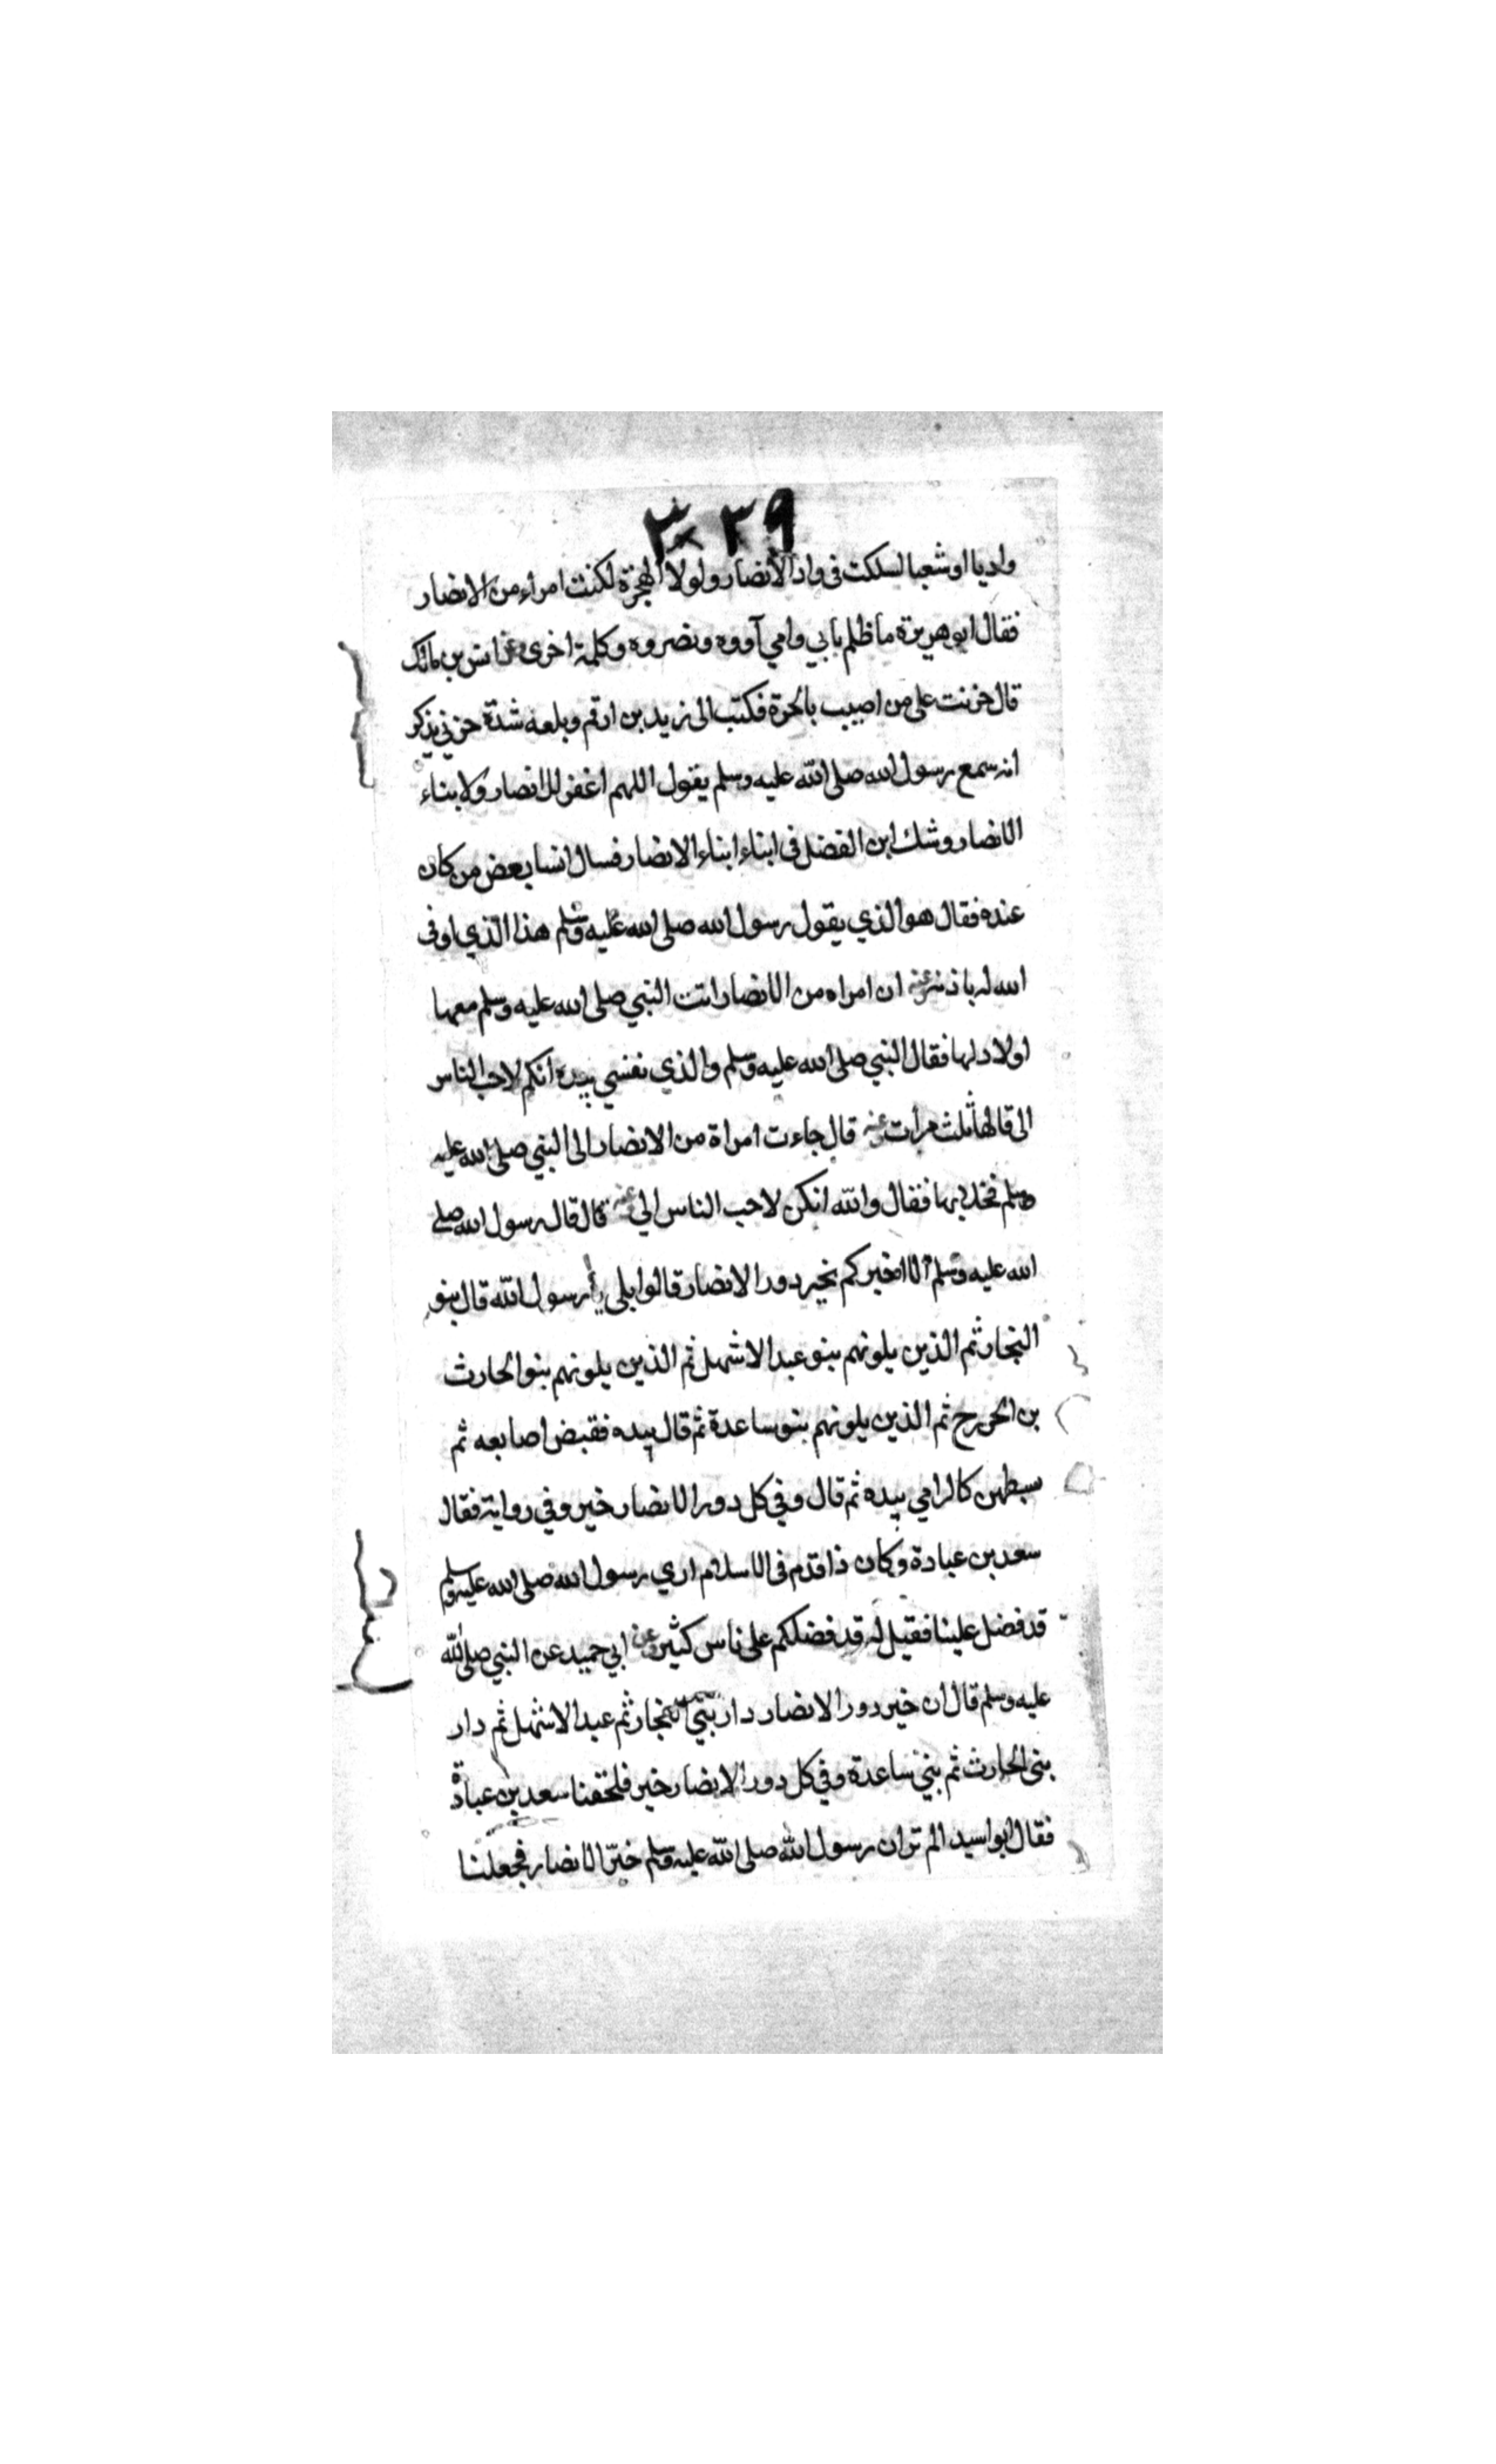 ٣٣٩
واديا او شعبا لسلكت فى واد الانصار ولولا الهجرة لكنت امراء من الانصار
فقال ابو هريرة ما ظلم بابي وامي آووه ونصروه وكلمة اخرى عن انس بن مالك
قال حزنت على من اصيب بالحرة فكتب الى زيد بن ارقم وبلعه شدة حزني يذكر
انه سمع رسول الله صلى الله عليه وسلم يقول اللهم اغفر للانصار ولابناء
الانصار وشك ابن الفضل فى ابناء ابناء الانصار فسال انسا بعض من كان
عنده فقال هو الذي يقول رسول الله صلى الله عليه وسلم هذا الذي اوفى
الله له باذنه عنه ان امراه من الانصار اتت النبي صلى الله عليه وسلم معها
اولاد لها فقال النبي صلى الله عليه وسلم والذي نفسي بيده انكم لاحب الناس
الى قالها ثلث مرات عنه قال جاءت امراة من الانصار الى النبي صلى الله عليه
وسلم فخلا بها فقال والله انكن لاحب الناس الي عنه قال قال رسول الله صلى
الله عليه وسلم الا اخبركم بخير دور الانصار قالوا بلى يا رسول الله قال بنو
النجار ثم الذين يلونهم بنو عبد الاشهل ثم الذين يلونهم بنو الحارث
بن الخزرج ثم الذين يلونهم بنو ساعدة ثم قال بيده فقبض اصابعه ثم
بسطهن كالرامي بيده ثم قال وفي كل دور الانصار خير وفي رواية فقال
سعد بن عبادة وكان ذا قدم فى الاسلام ارى رسول الله صلى الله عليه وسلم
قد فضل علينا فقيل له قد فضلكم على ناس كثير وعن ابي حميد عن النبي صلى الله
عليه وسلم قال ان خير دور الانصار دار بني النجار ثم عبد الاشهل ثم دار
بنى الحارث ثم بني ساعدة وفي كل دور الانصار خير فلحقنا سعد بن عبادة
فقال ابو اسيد الم تر ان رسول الله صلى الله عليه وسلم خيّر الانصار فجعلنا